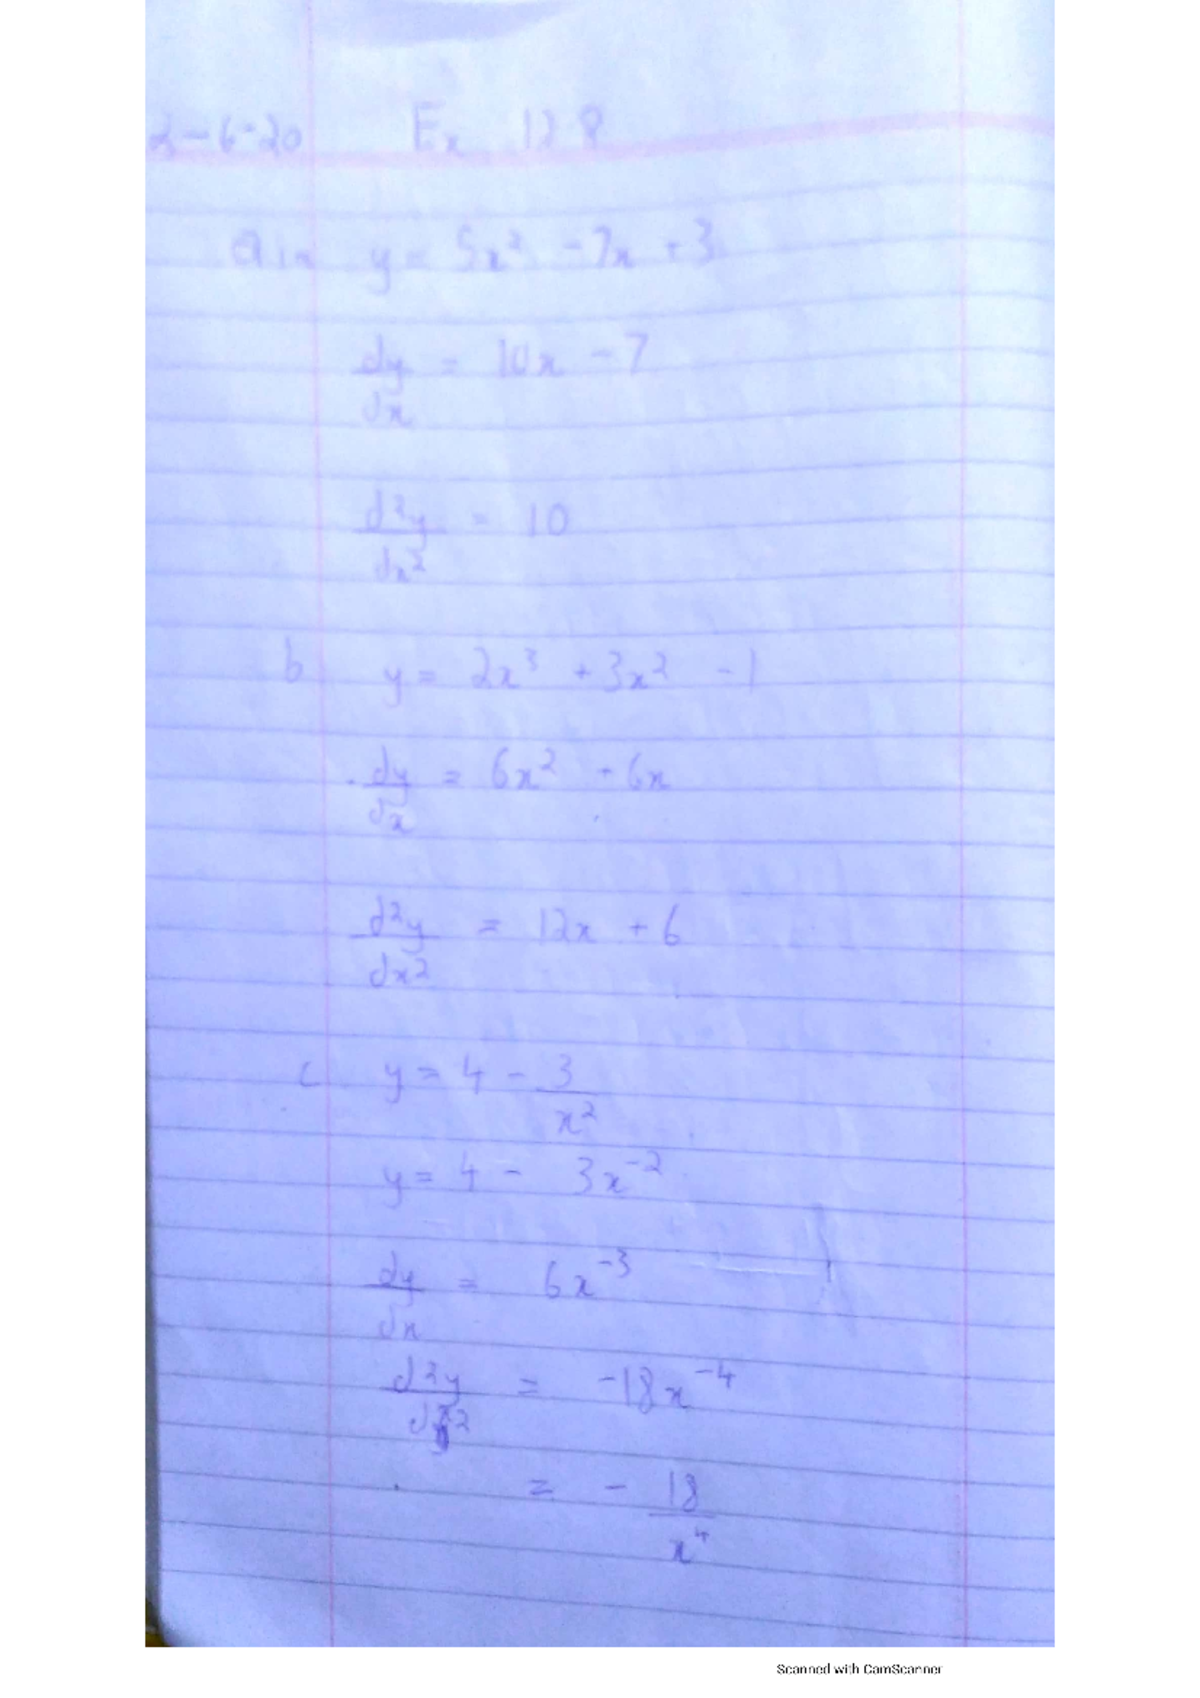 2-6-20 Ex 12 8
Q1a y = 5x² - 7x + 3
dy/dx = 10x - 7
d²y/dx² = 10
b y = 2x³ + 3x² - 1
dy/dx = 6x² + 6x
d²y/dx² = 12x + 6
c y = 4 - 3/x²
y = 4 - 3x⁻²
dy/dx = 6x⁻³
d²y/dx² = -18x⁻⁴
= - 18/x⁴
Scanned with CamScanner